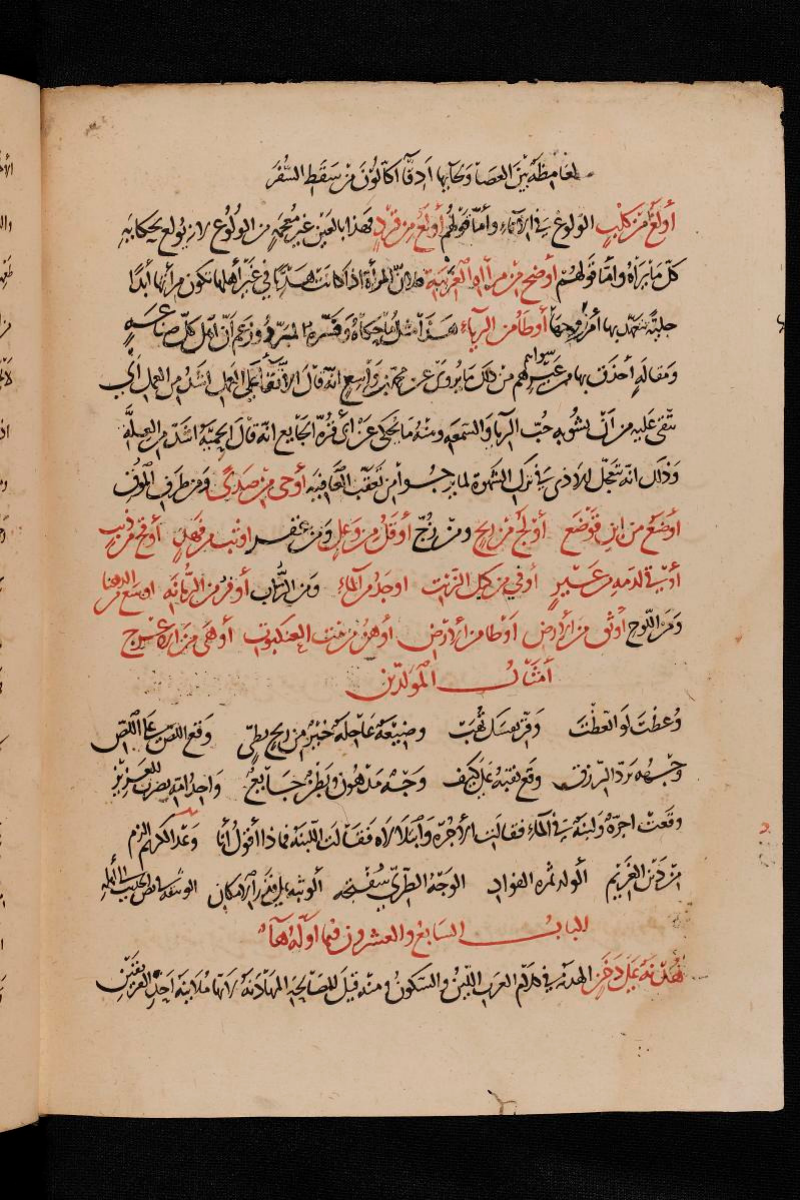 بين العصا ولحائها آدقا اكالون من سقط السفر
أولغ من كلب الولوغ في الإناء وأما قولهم أولع من قرد فهذا بالعين غير معجمه من الولوع لانه يولع بحكايه
كل ما يراه واما قولهم أوضح من مرآة الغريبة فلان المرأة اذا كانت هديا في غير أهلها تكون مرآتها أبدا
جلية تتعهد بها أمر وجهها أوطأ من الرياء هذا مثل حكاه وفسره المبرد وزعم أن أهل كل صناعة
ومقالة أحذق بها من غير أهلها من ذلك ما يروى عن محمد بن واسع انه قال الاتقاء على العمل اشد من العمل اي
يتقى عليه من أن يشوبه حب الرياء والسمعه ومنه ما يحكى عن أبي قرة الجايع انه قال الحمية اشد من العلة
وذلك انه تتعجل الاذى في ترك الشهوة لما يرجو من تعقب العافيه أوحى من صدى ومن طرف الموق
اوضع من ابن قوضع أولج من ريح ومن زج أوقل من وعل ومن غفر اوثب من فهد أوقح من ذيب
أوفى لدمه من عير أوفى من كيل الزيت اوجد من الماء ومن التراب أوفر من الرمانة اوسع من الدهنا
ومن اللوح أوثق من الارض أوطا من الارض أوهن من بيت العنكبوت أوهى من الاعرج
أمثال المولدين
وعظت لو اتعظت وقر بفسك تهب وضيعة عاجلة خير من ربح بطي وقع اللص على اللص
وجهه يرد الرزق وقع نقبه على كنيف وجه مدهون وبطن جايع واحد امه يضرب للعزيز
وقعت اجرة ولبنة في الماء فقالت الاجرة وابتلالاه فقالت اللبنة فماذا أقول أنا وعد الكريم الزم
من دين الغريم الولد ثمره الفواد الوجه الطري سفتجه الوثبه على قدر الامكان
الباب السابع والعشرون فيما اوله هاء
هدنة على دخن الهدنه في كلام العرب اللين والسكون ومنه قيل للمصالحة المهادنة لانها ملاينة احد الفريقين